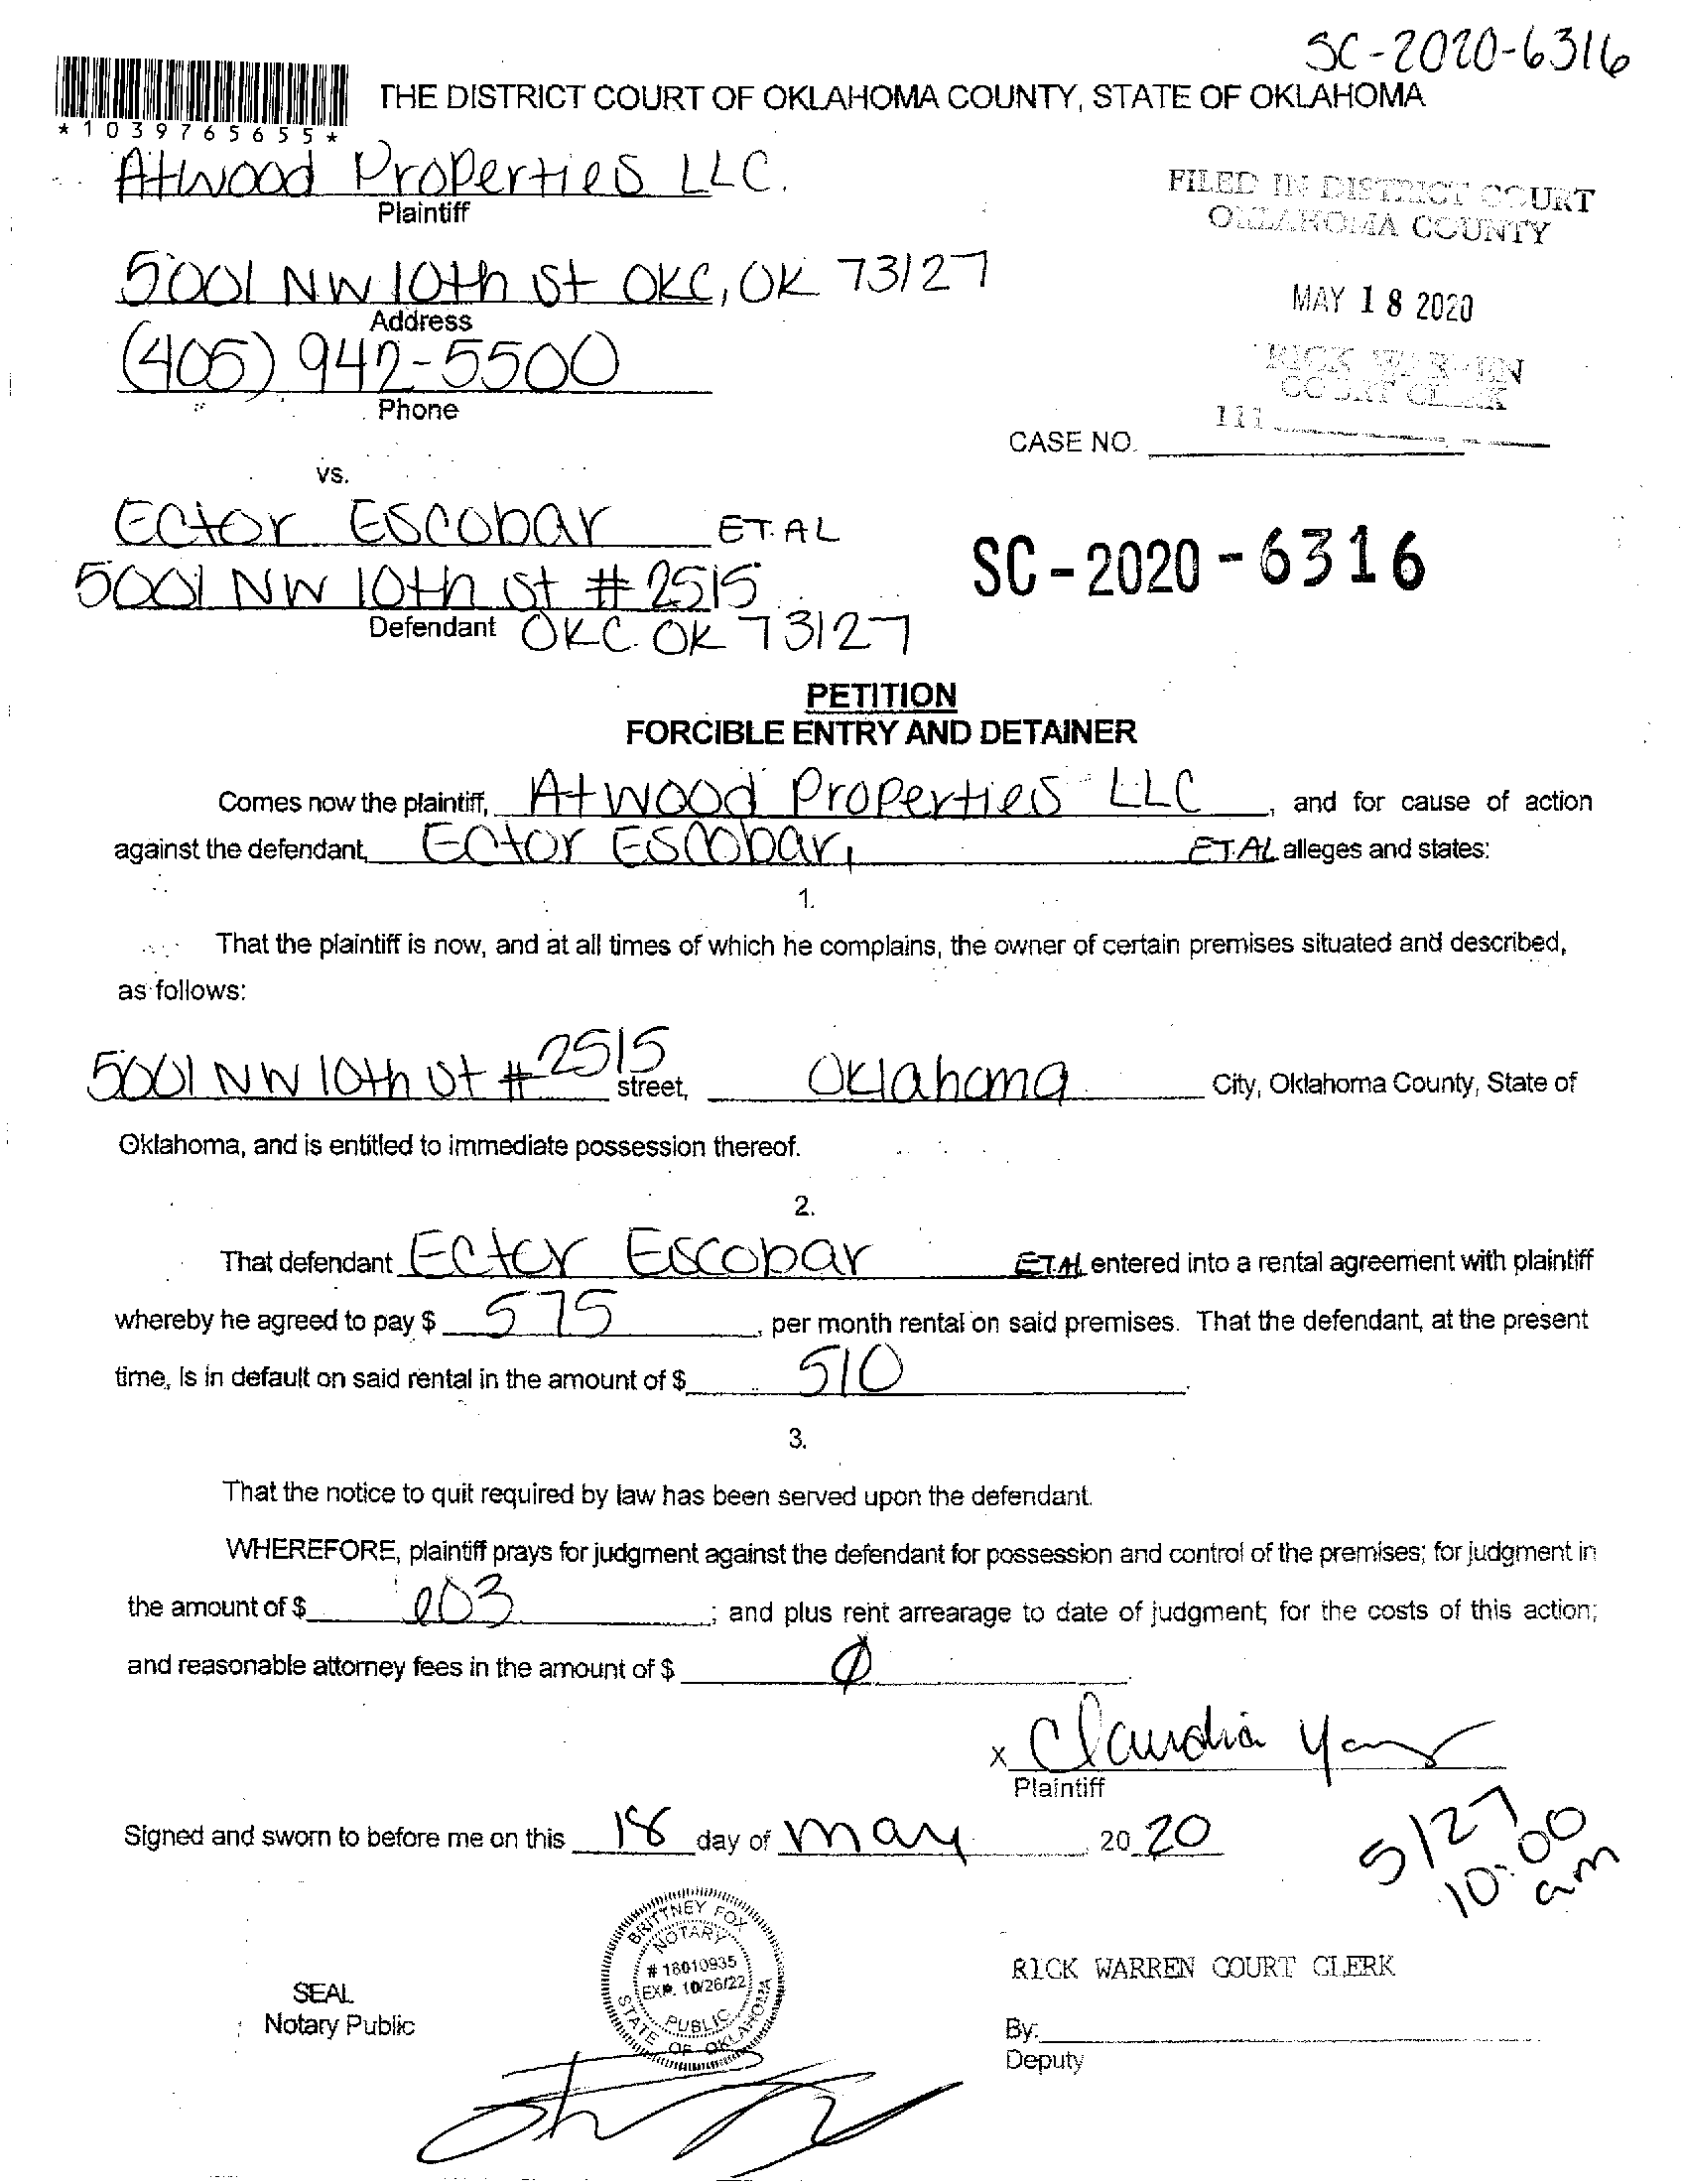 SC-2020-6316
*1039765655*
THE DISTRICT COURT OF OKLAHOMA COUNTY, STATE OF OKLAHOMA
Atwood Properties LLC.
Plaintiff
FILED IN DISTRICT COURT
OKLAHOMA COUNTY
5001 NW 10th St OKC, OK 73127
Address
MAY 18 2020
(405) 942-5500
Phone
RICK WARREN
COURT CLERK
111
CASE NO.
vs.
Ector Escobar ET. AL
5001 NW 10th St # 2515
Defendant OKC. OK 73127
SC-2020-6316
PETITION
FORCIBLE ENTRY AND DETAINER
Comes now the plaintiff, Atwood Properties LLC, and for cause of action
against the defendant, Ector Escobar, ET.AL alleges and states:
1.
That the plaintiff is now, and at all times of which he complains, the owner of certain premises situated and described,
as follows:
5001 NW 10th St # 2515 street, Oklahoma City, Oklahoma County, State of
Oklahoma, and is entitled to immediate possession thereof.
2.
That defendant Ector Escobar ET.AL entered into a rental agreement with plaintiff
whereby he agreed to pay $ 575, per month rental on said premises. That the defendant, at the present
time, is in default on said rental in the amount of $ 510
3.
That the notice to quit required by law has been served upon the defendant.
WHEREFORE, plaintiff prays for judgment against the defendant for possession and control of the premises; for judgment in
the amount of $ 603; and plus rent arrearage to date of judgment; for the costs of this action;
and reasonable attorney fees in the amount of $ Ø
x Claudia
Plaintiff
Signed and sworn to before me on this 18 day of May, 2020
5/27
10:00
am
BRITTNEY FOX
NOTARY
# 18010935
EXP. 10/26/22
PUBLIC
STATE OF OKLAHOMA
SEAL
Notary Public
RICK WARREN COURT CLERK
By:
Deputy